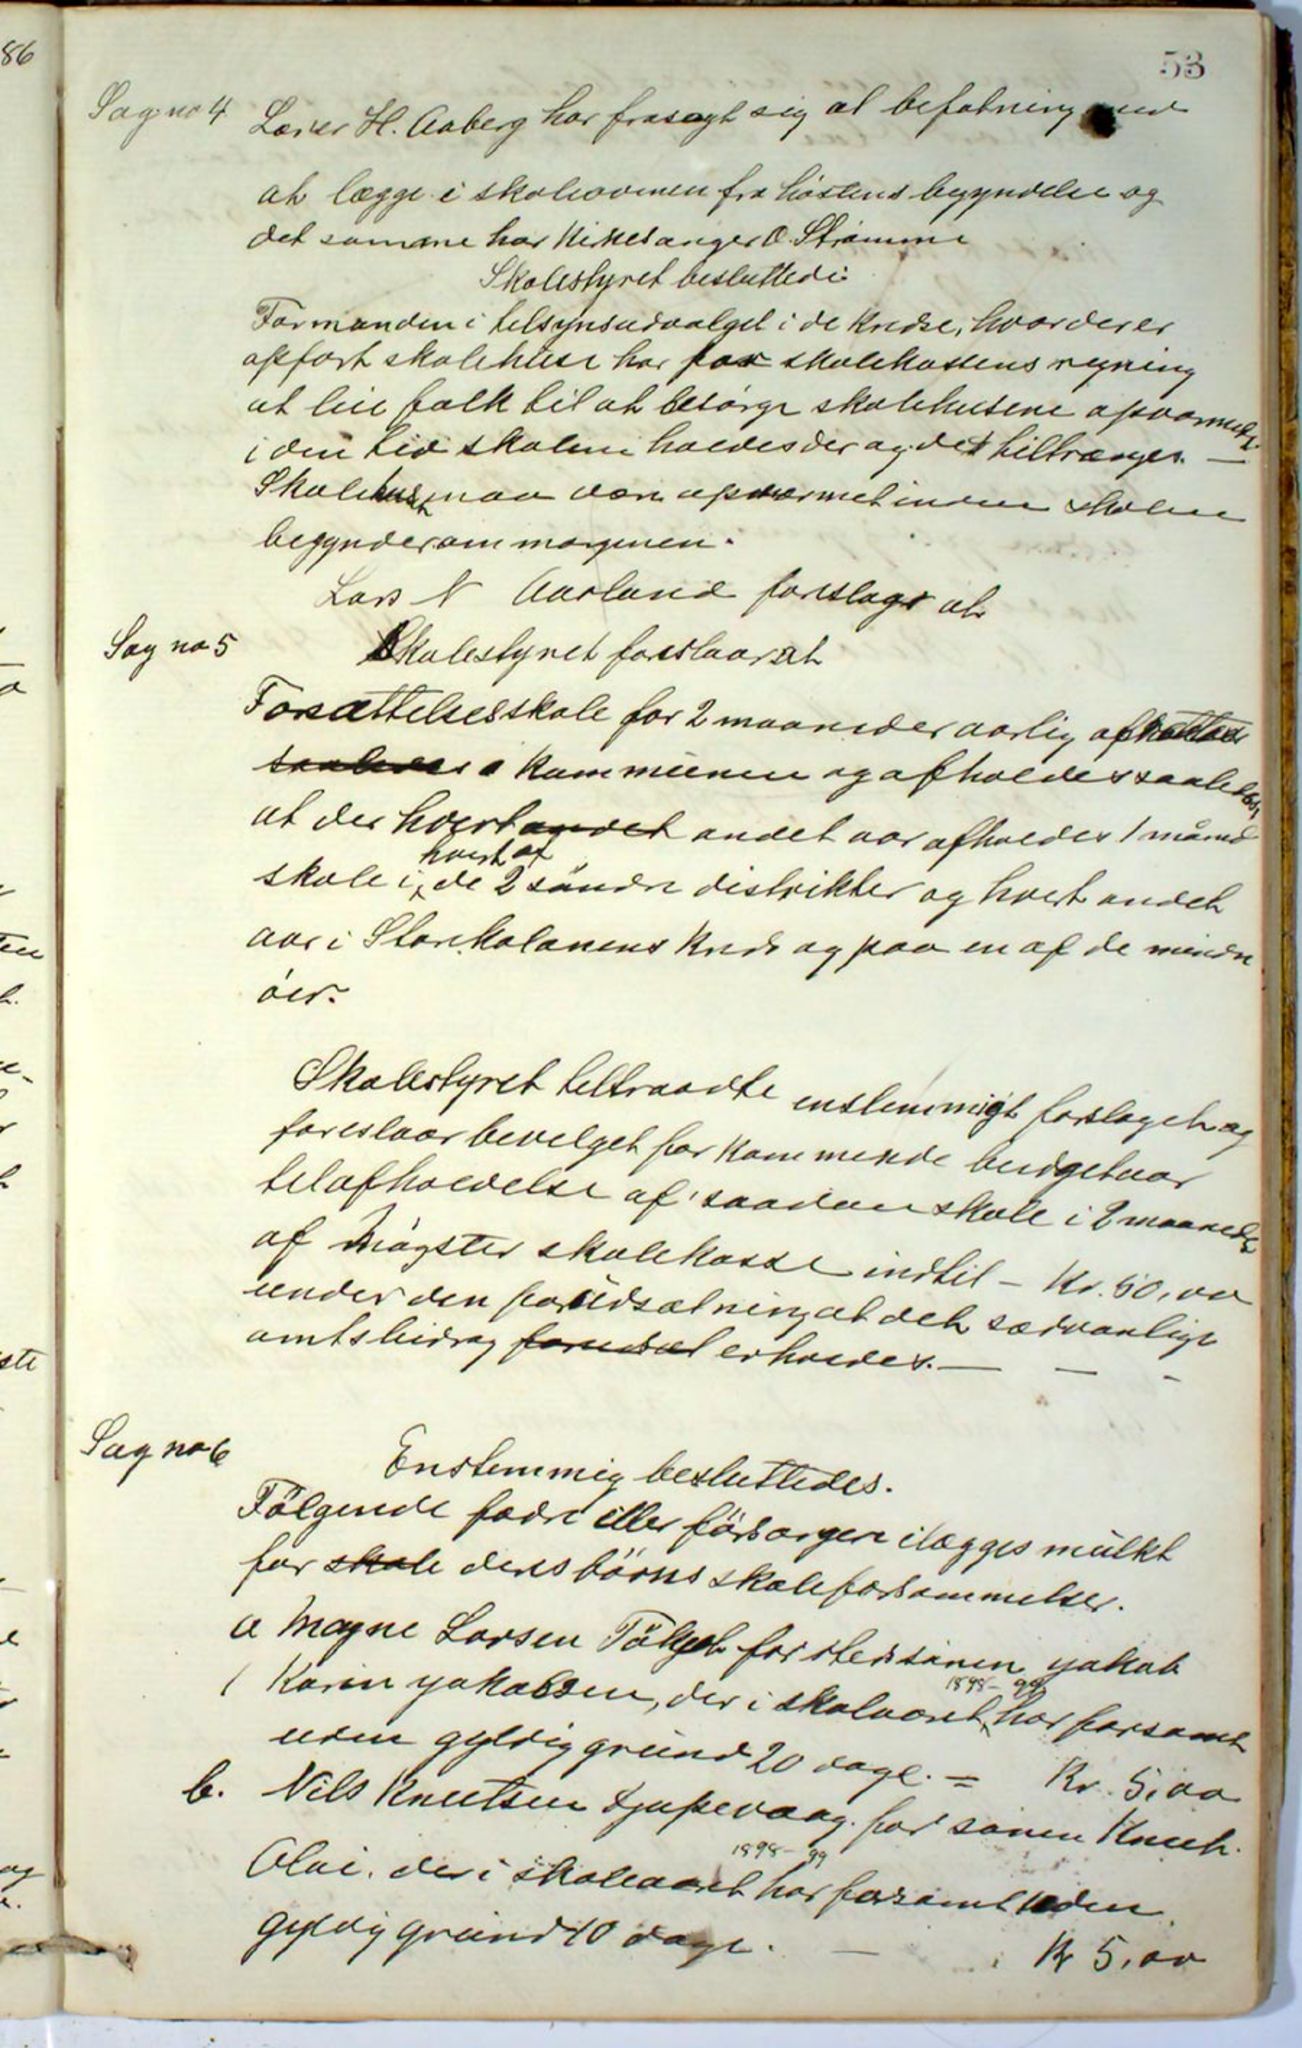 86
53
Sag no 4 Lærer H. Aaberg har frasagt sig al befatning med
at lægge i skoleovnen fra høstens begyndelse og
det samme har Kirkesanger O. Strømme
Skolestyret besluttede:
Formanden i tilsynsudvalget i de Kredse, hvor der er
opført skolehuse har for skolekassens regning
at leie folk til at besørge skolehusene opvarmede
i den tid skolen holdes der og det tiltrænges. —
Skolehuset maa være opvarmet inden skolen
begynder om morgenen.
Lars N Aarland foreslaar at
Sag no 5 Skolestyret foreslaar at
Forsættelsesskole for 2 maaneder aarlig afholdes
saaledes i Kommunen og afholdes saaledes
at der hvert andet andet aar afholdes 1 måned
hvert af
skole i de 2 søndre distrikter og hvert andet
aar i Storekalsøens Kreds og paa en af de mindre
øer.
Skolestyret tiltraadte enstemmigt forslaget og
foreslaar bevilget for Kommende budgetaar
til afholdelse af saadan skole i 2 maaneder
af Møgster skolekasse indtil — Kr. 50,00
under den forudsætning at det sædvanlige
amtsbidrag forudsat erholdes. — — -
Sag no 6 Enstemmig besluttedes.
Følgende fædre eller forsørgere ilægges mulkt
for skole deres børns skoleforsømmelser.
a Magne Larsen for stedsønnen Jakob
1898-99
( Karin Jakobsen, der i skoleaaret har forsømt
uden gyldig grund 20 dage. = Kr. 5,00
b. Nils Knutsen Djupevaag for sønen Knut
1898-99
Olai. der i skoleaaret har forsømt uden
gyldig grund 10 dage. — Kr 5,00